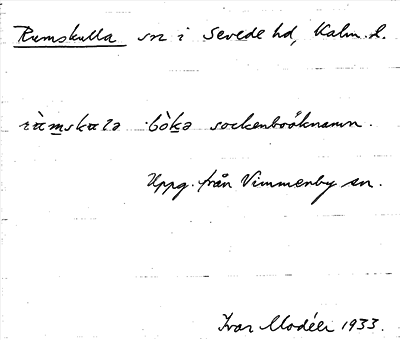 Rumskulla sn i Sevede hd, Kalm. l.
ròmskala bòka sockenboöknamn.
Uppg. från Vimmerby sn.
Ivar Modéer 1933.